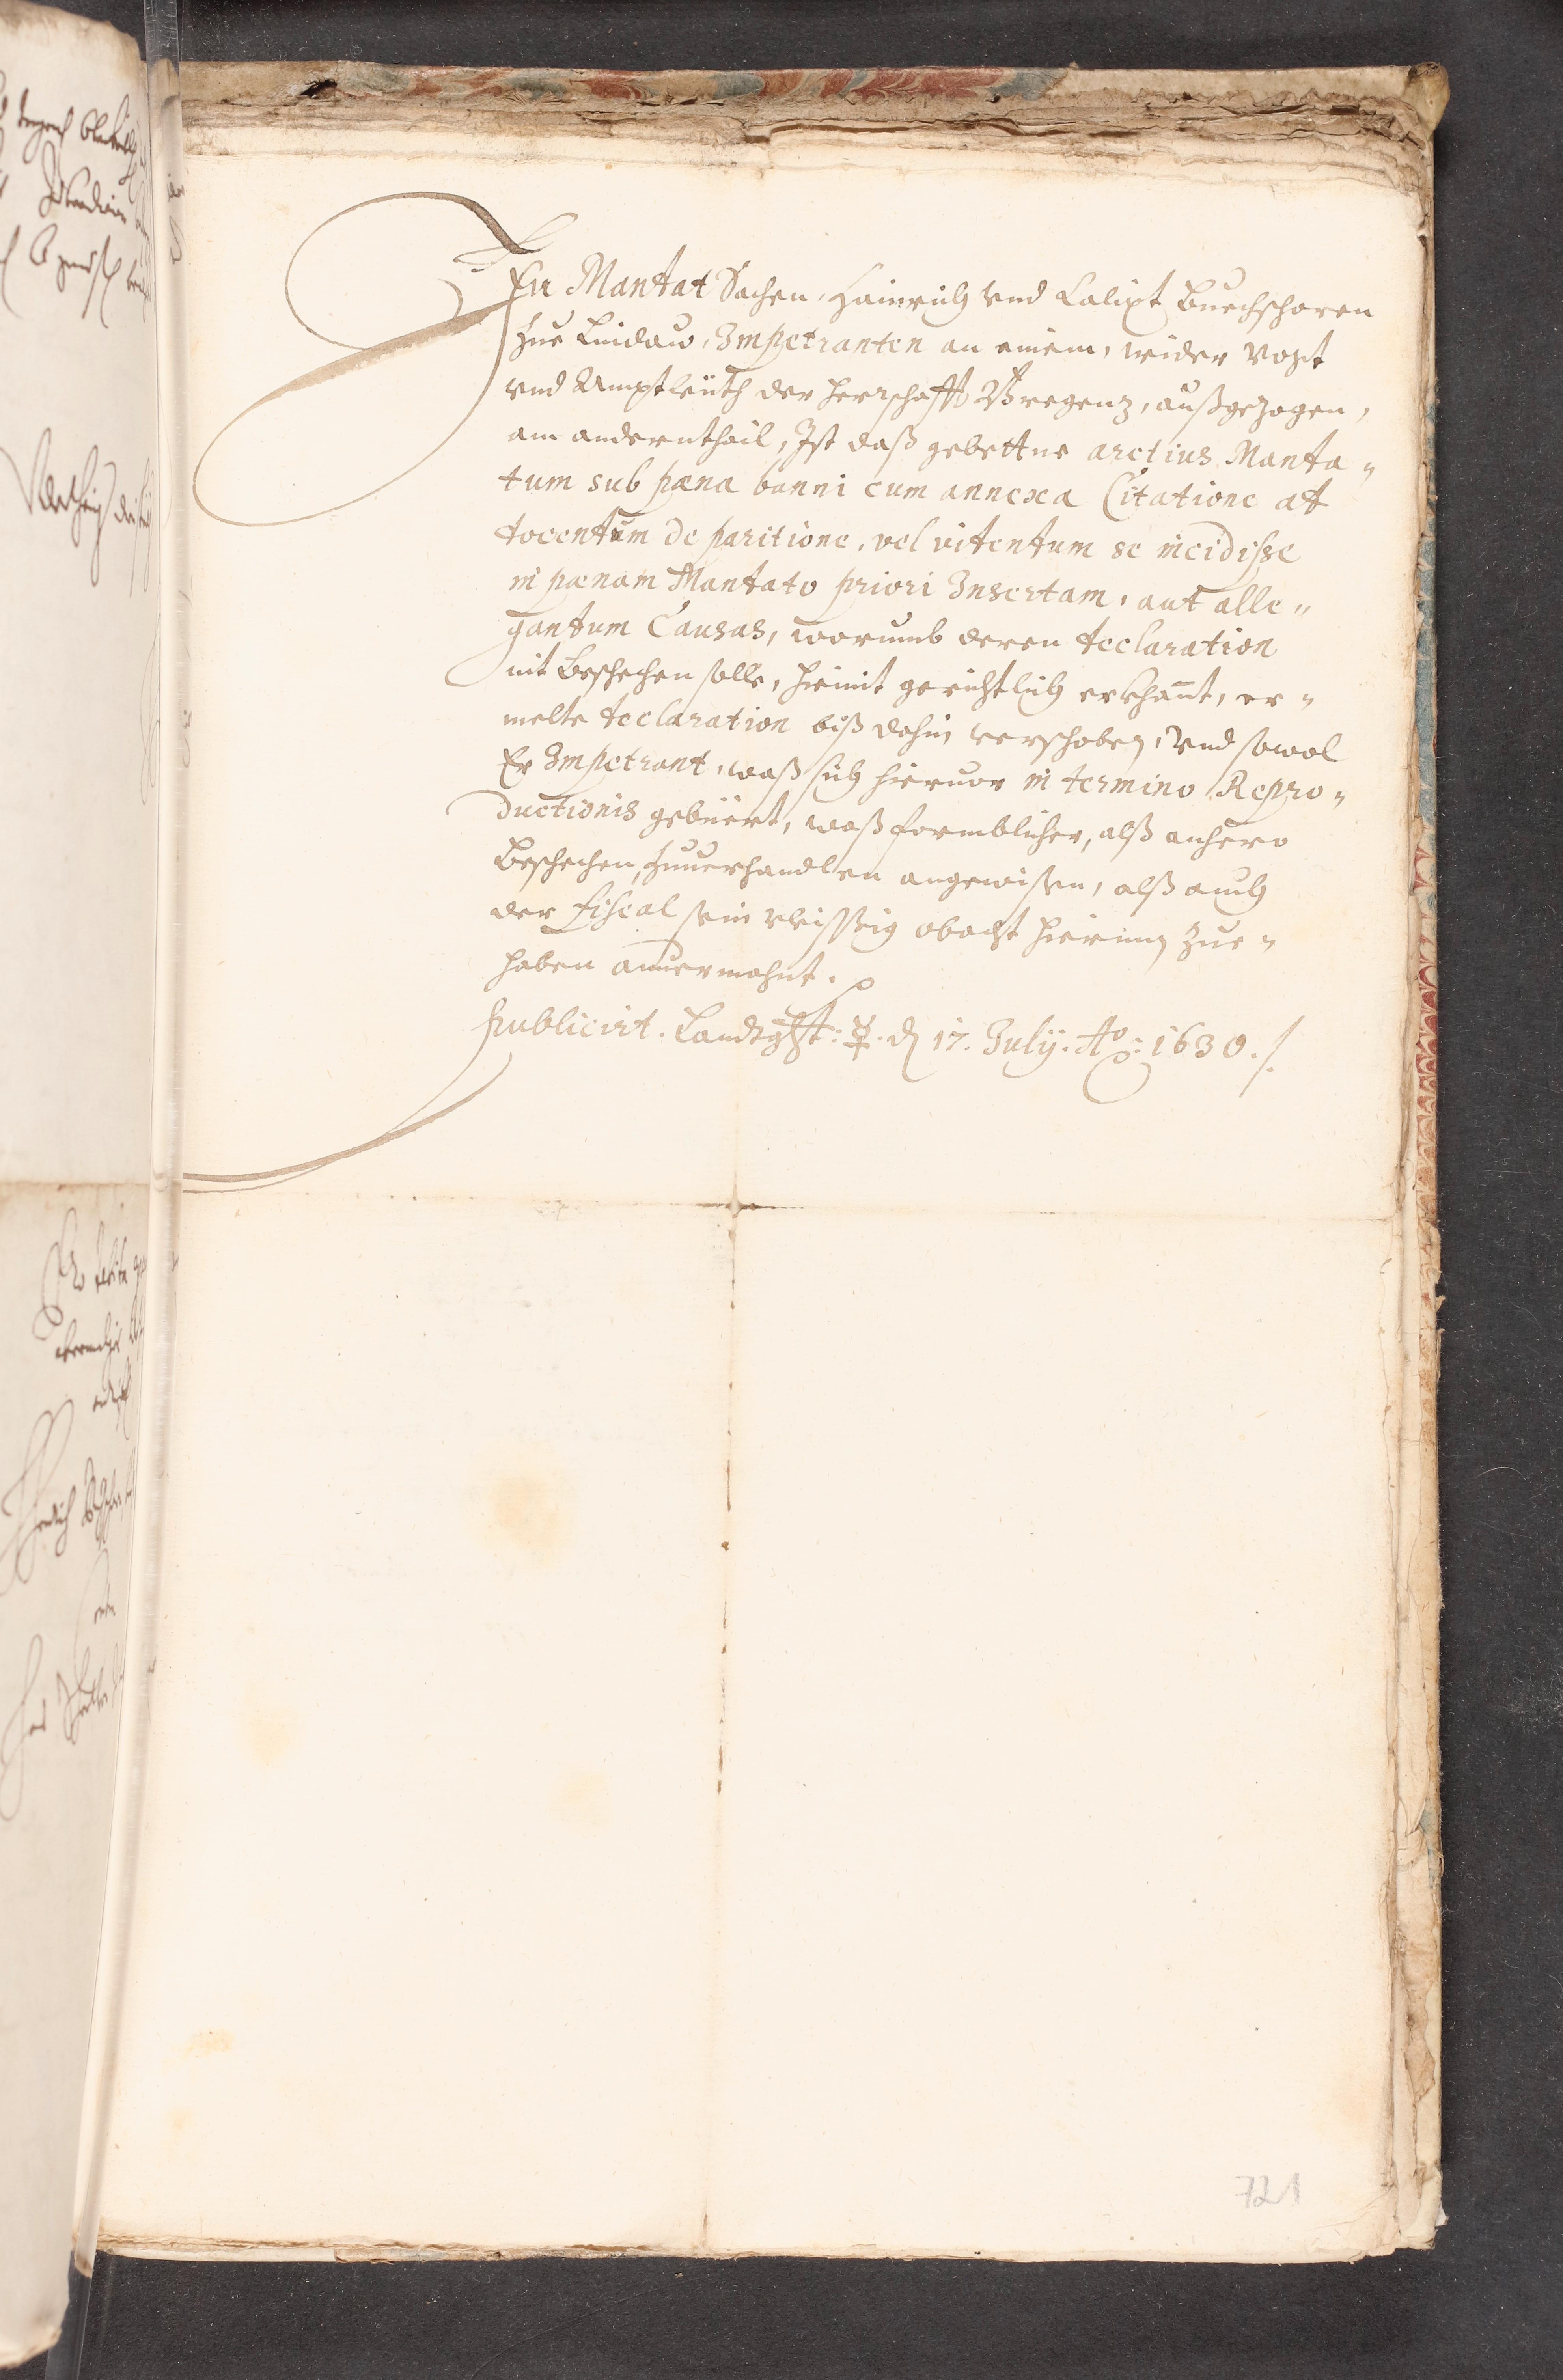 In Mandat Sachen, Hainrich vnd Calixt Buechschoren
zue Lindaw, Impetranten an einem, wider Vogt
vnd Amptleüth der Herrschafft Bregenz, außgezogen,
am andernthail, Ist daß gebettne arctius Manda=
tum sub pæna banni cum annexa Citatione ad
docendum de paritione, vel videndum se incidisse
in pænam Mandato priori Insertam, aut alle=
gandum Causas, warumb deren declaration
nit beschechen solle, hiemit gerichtlich erkhant, er=
melte declaration biß dahin verschoben, Vnd sowol
Er Impetrant, waß sich hieruor in termino Repro=
ductionis gebüert, waß formblicher, alß anhero
beschechen, zuuerhandlen angewisen, alß auch
der Fiscal sein vleissig obacht hierinn zue=
haben anuermahnt.
Publicirt. Landtgcht: ☿. dn 17. Julÿ. Ao: 1630./.
721